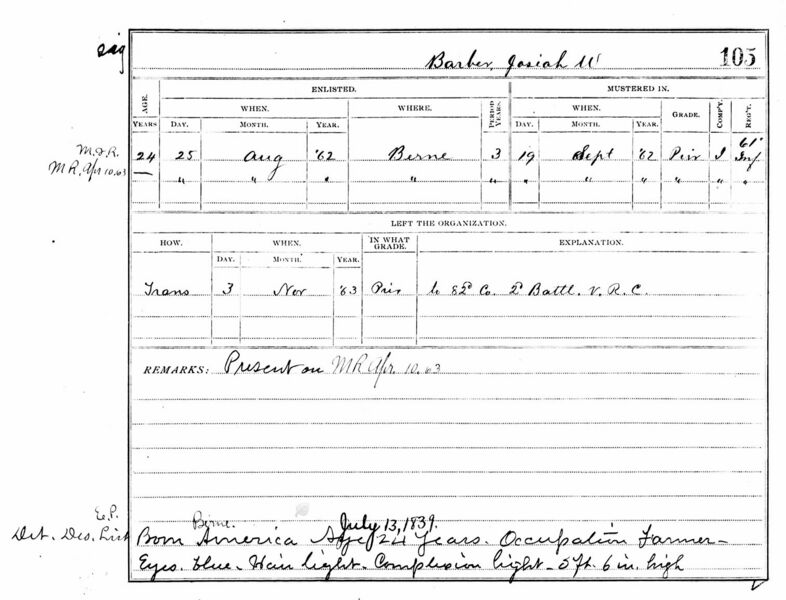 sig
Barber, Josiah W
105
AGE.
ENLISTED.
MUSTERED IN.
YEARS
WHEN.
WHERE.
PERIOD YEARS.
WHEN.
GRADE.
COMP'Y.
REG'T.
DAY. MONTH. YEAR.
DAY. MONTH. YEAR.
M.&R.
24 25 Aug '62 Berne 3 19 Sept '62 Priv I 61' Inf
MR. Apr 10.63
— " " " " " " " " " " "
LEFT THE ORGANIZATION.
HOW. WHEN. IN WHAT GRADE. EXPLANATION.
DAY. MONTH. YEAR.
Trans 3 Nov '63 Priv to 82d Co. 2d Battl. V. R. C.
REMARKS: Present on MR Apr. 10.63
E.P.
Berne. July 13, 1839.
Det. Des. List Born America Age 24 Years. Occupation Farmer -
Eyes. blue - Hair light - Complexion light - 5 ft. 6 in. high